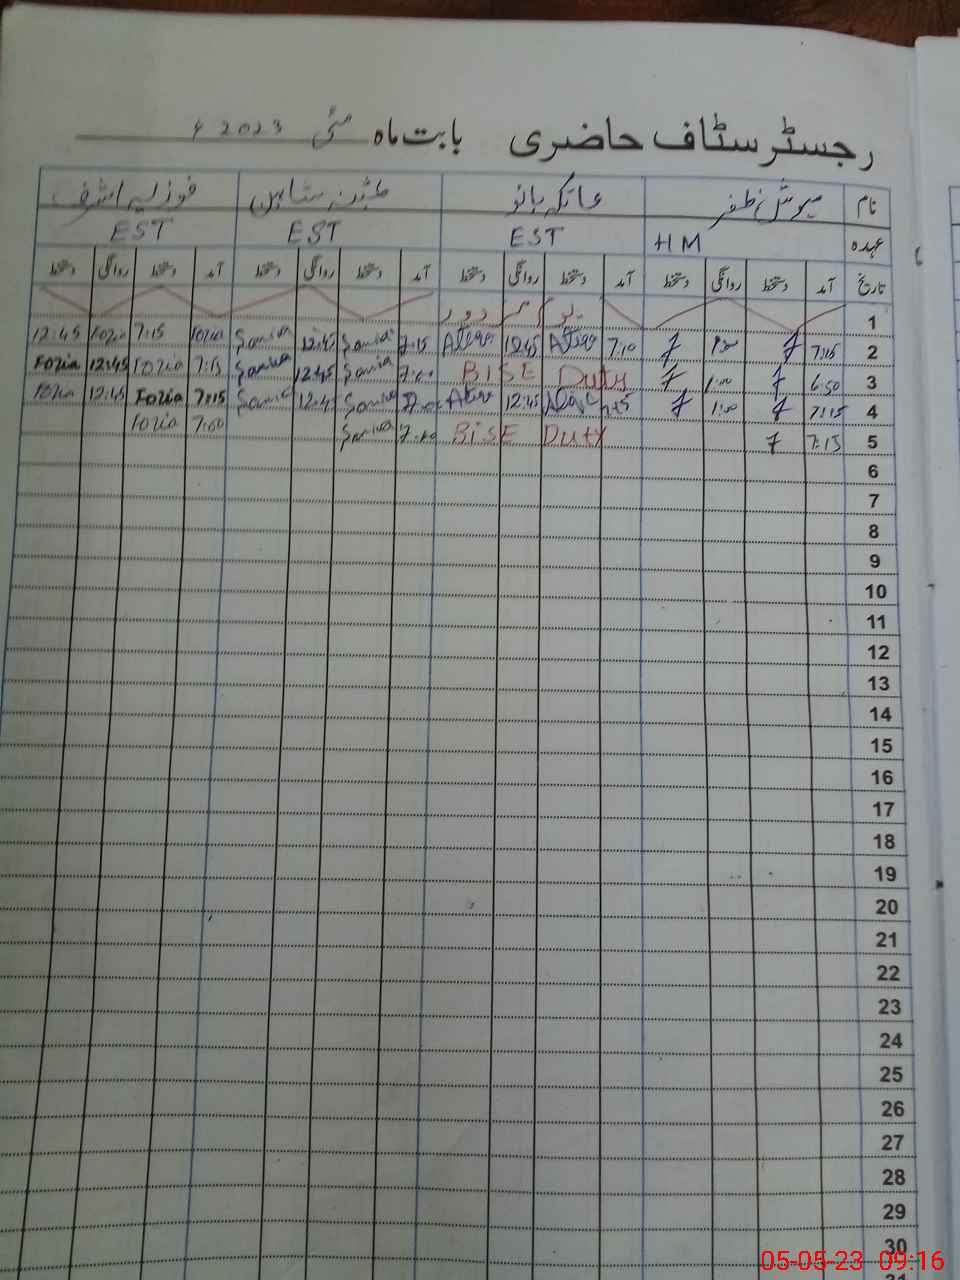 رجسٹر سٹاف حاضری بابت ماہ مئی 2023ء
نام ظفر عاتکہ بانو فوزیہ اشرف
عہدہ HM EST EST EST
تاریخ آمد دستخط روانگی دستخط آمد دستخط روانگی دستخط آمد دستخط روانگی دستخط آمد دستخط روانگی دستخط
1 یوم مزدور
2 7:15 7 7 7:10 12:45 7:15 Samina 12:45 Samina Fozia 7:15 Fozia 12:45
3 6:50 7 1:00 7 BISE Duty 7:00 Samina 12:45 Samina 7:15 Fozia 12:45 Fozia
4 7:15 7 1:00 7 12:45 7:00 Samina 12:45 Samina 7:15 Fozia 12:45 Fozia
5 7:15 7 BISE Duty Samina 7:00 Fozia
6
7
8
9
10
11
12
13
14
15
16
17
18
19
20
21
22
23
24
25
26
27
28
29
30
31
05-05-23 09:16